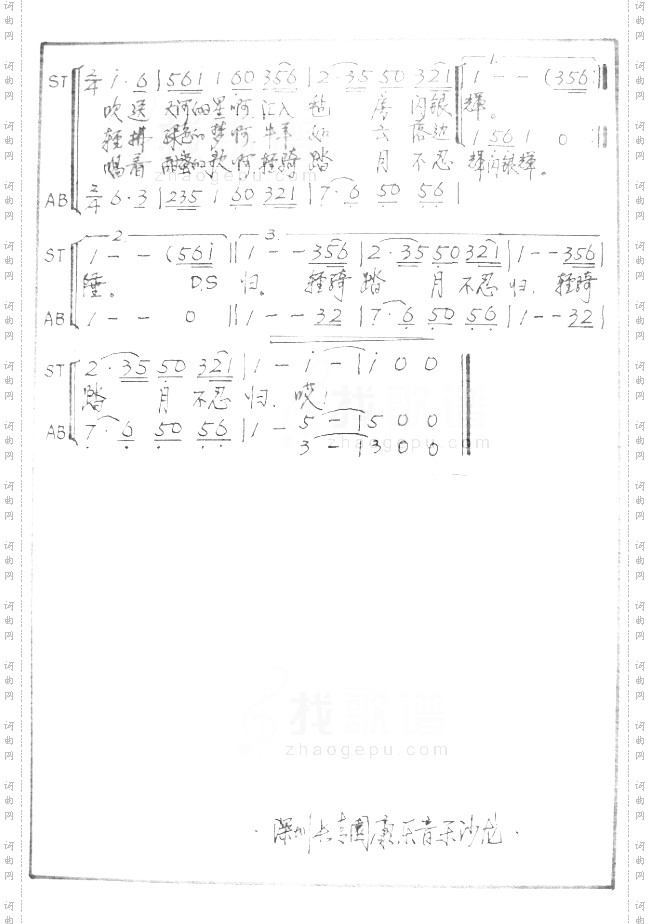 ST 2/4 i· 6 | 561 1 60 356 | 2·35 50 321 | 1. 1 - - (356:
吹送 天河的星啊 汇入 毡 房 闪银 辉。
轻拼 绿色的梦啊 牛羊 如 云 落边
1 561 1 0
唱着 甜蜜的歌啊 轻骑 踏 月 不忍 辉闪银辉。
AB 2/4 6·3 | 235 1 60 321 | 7·6 50 56 |
2. 3.
ST 1 - - (561 || 1 - - 356 | 2·35 50 321 | 1 - - 356 |
睡。 D.S 归。 轻骑 踏 月 不忍 归. 轻骑
AB 1 - - 0 || 1 - - 32 | 7·6 50 56 | 1 - - 32 |
ST 2·35 50 321 | 1 - i - | i 0 0
踏 月 不忍 归.
AB 7·6 50 56 | 1 - 5 - | 5 0 0
3 - | 3 0 0
找歌谱
zhaogepu.com
找歌谱
zhaogepu.com
·深圳 康乐音乐沙龙·
词曲网